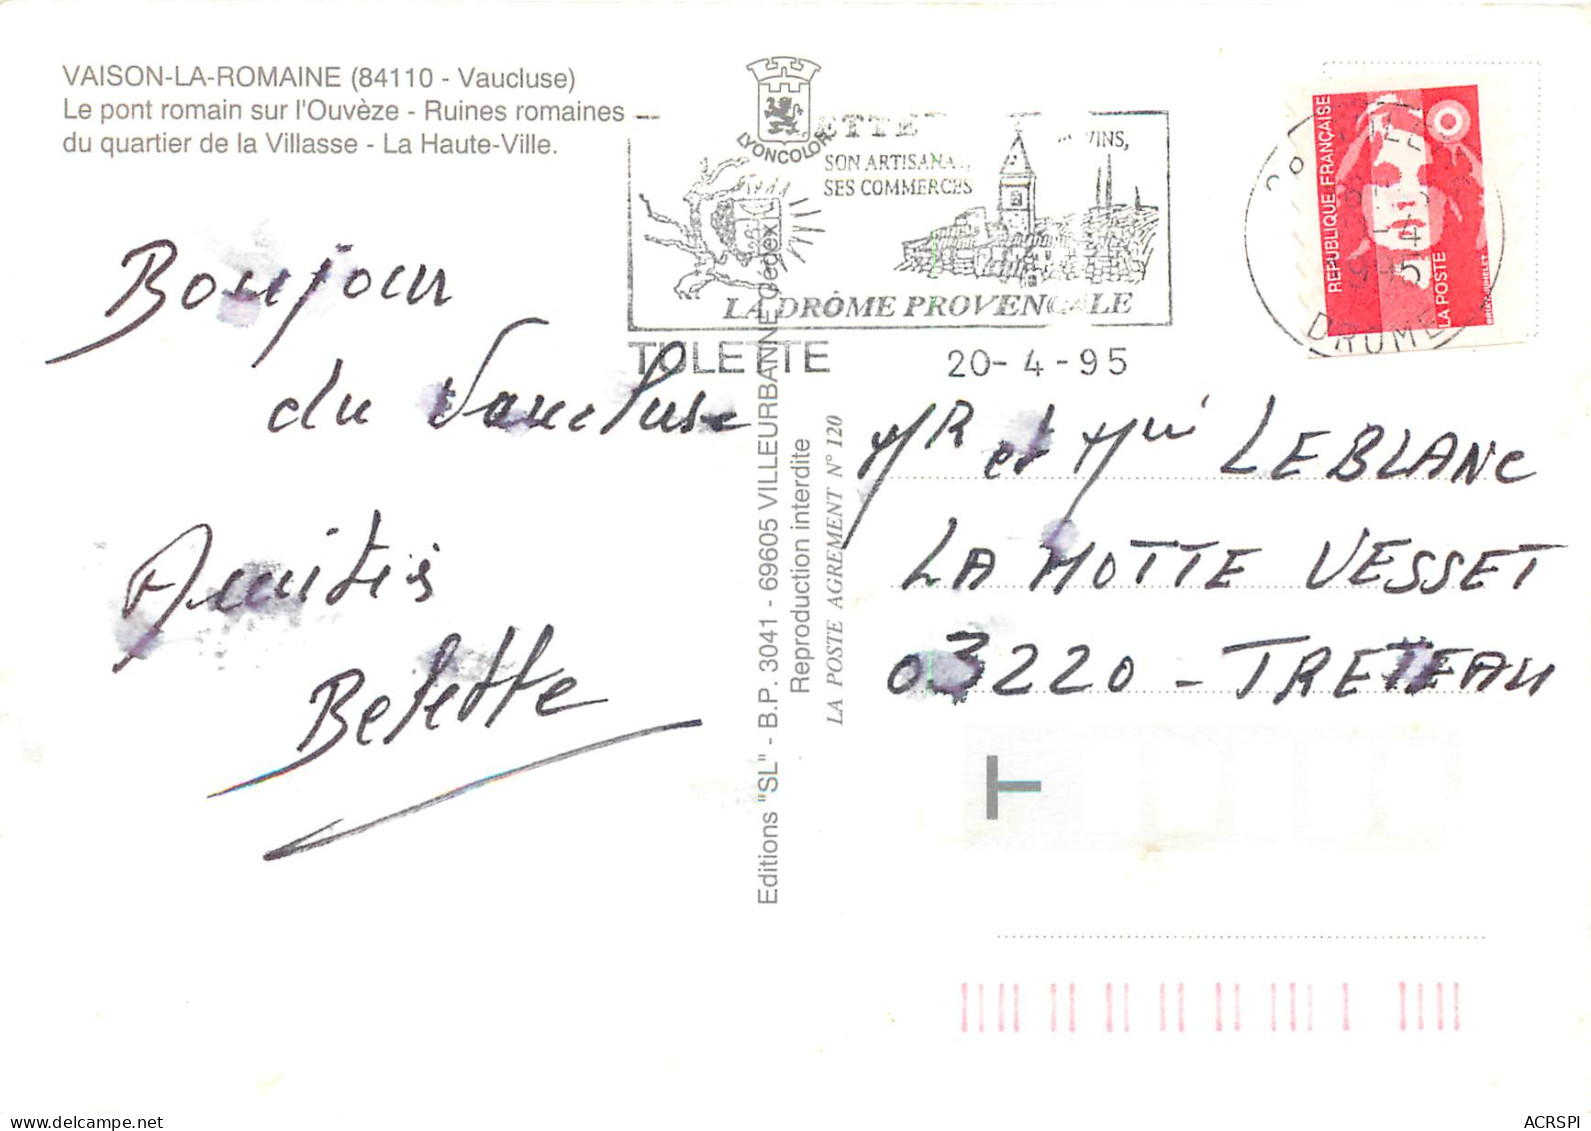 VAISON-LA-ROMAINE (84110 - Vaucluse)
Le pont romain sur l'Ouvèze - Ruines romaines
du quartier de la Villasse - La Haute-Ville.
LYONCOLOR
VINS,
SON ARTISANAT,
SES COMMERCES
LA DRÔME PROVENÇALE
TULETTE
20-4-95
REPUBLIQUE FRANÇAISE
LA POSTE
DROME
Bonjour
du Vaucluse
Amitiés
Belette
Editions "SL" - B.P. 3041 - 69605 VILLEURBANNE Cédex
Reproduction interdite
LA POSTE AGREMENT N° 120
MR et Mme LEBLANC
LA MOTTE VESSET
03220 - TRETEAU
T
ACRSPI